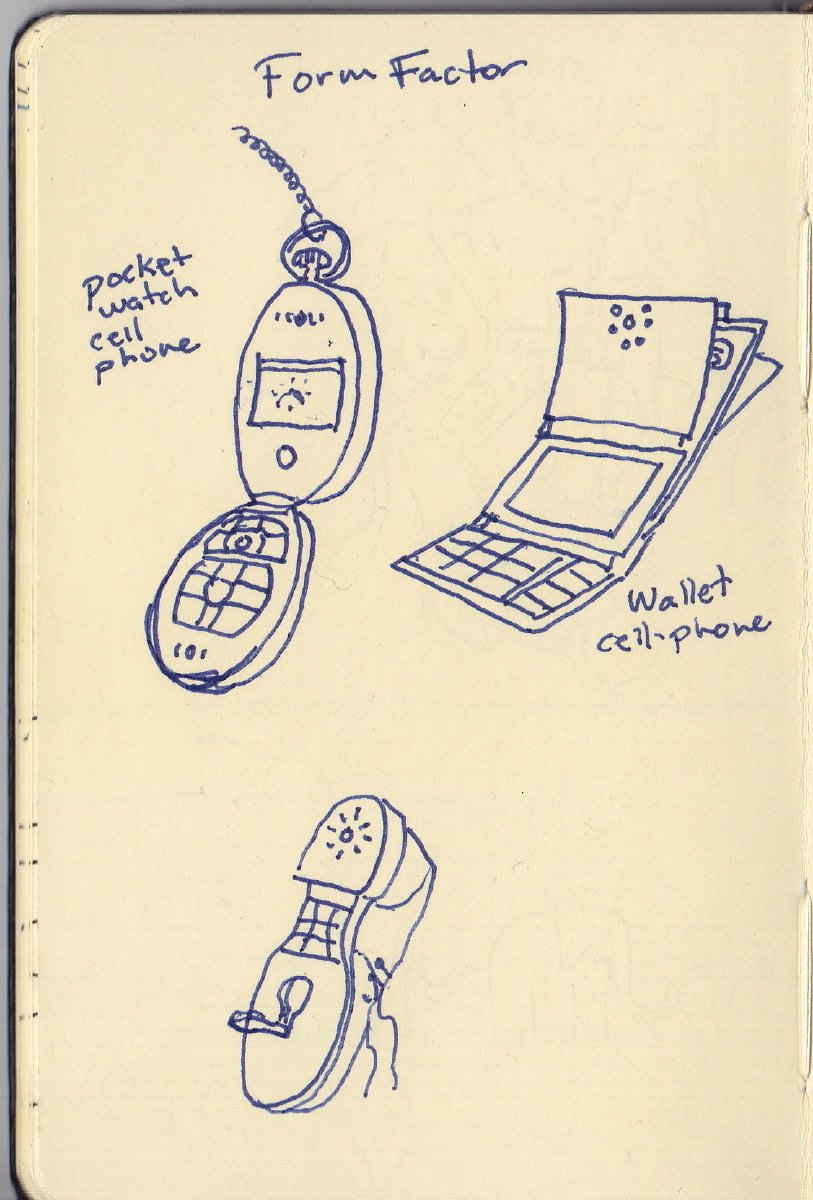 Form Factor
pocket
watch
cell
phone
Wallet
cell-phone